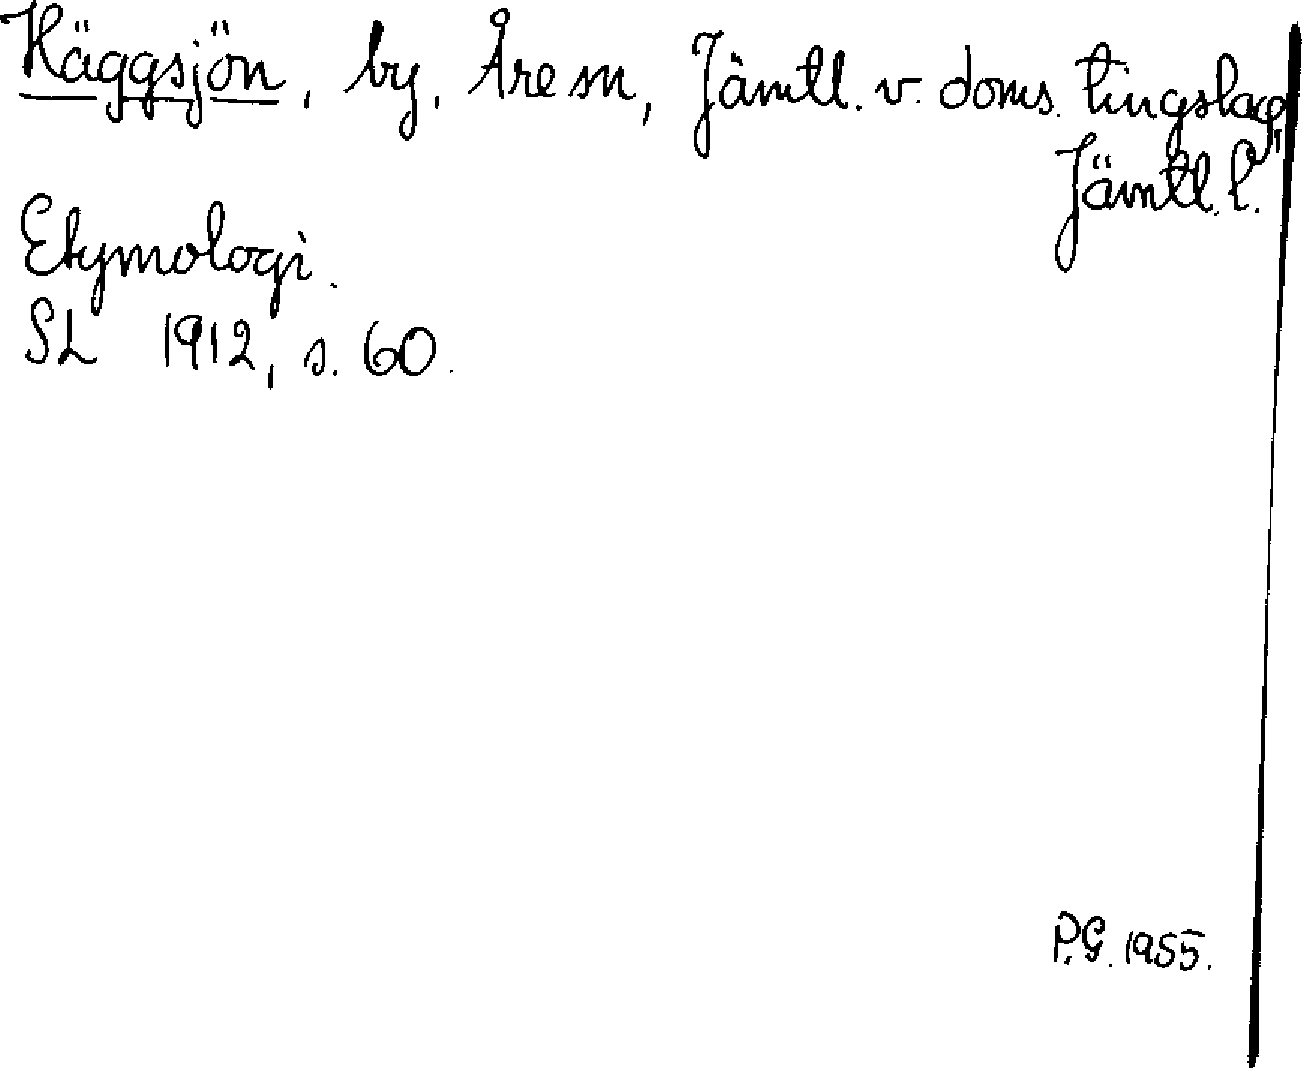 Häggsjön, by, Åre sn, Jämtl. v. doms. tingslag,
Jämtl. l.
Etymologi.
SL 1912, s. 60.
P.G. 1955.